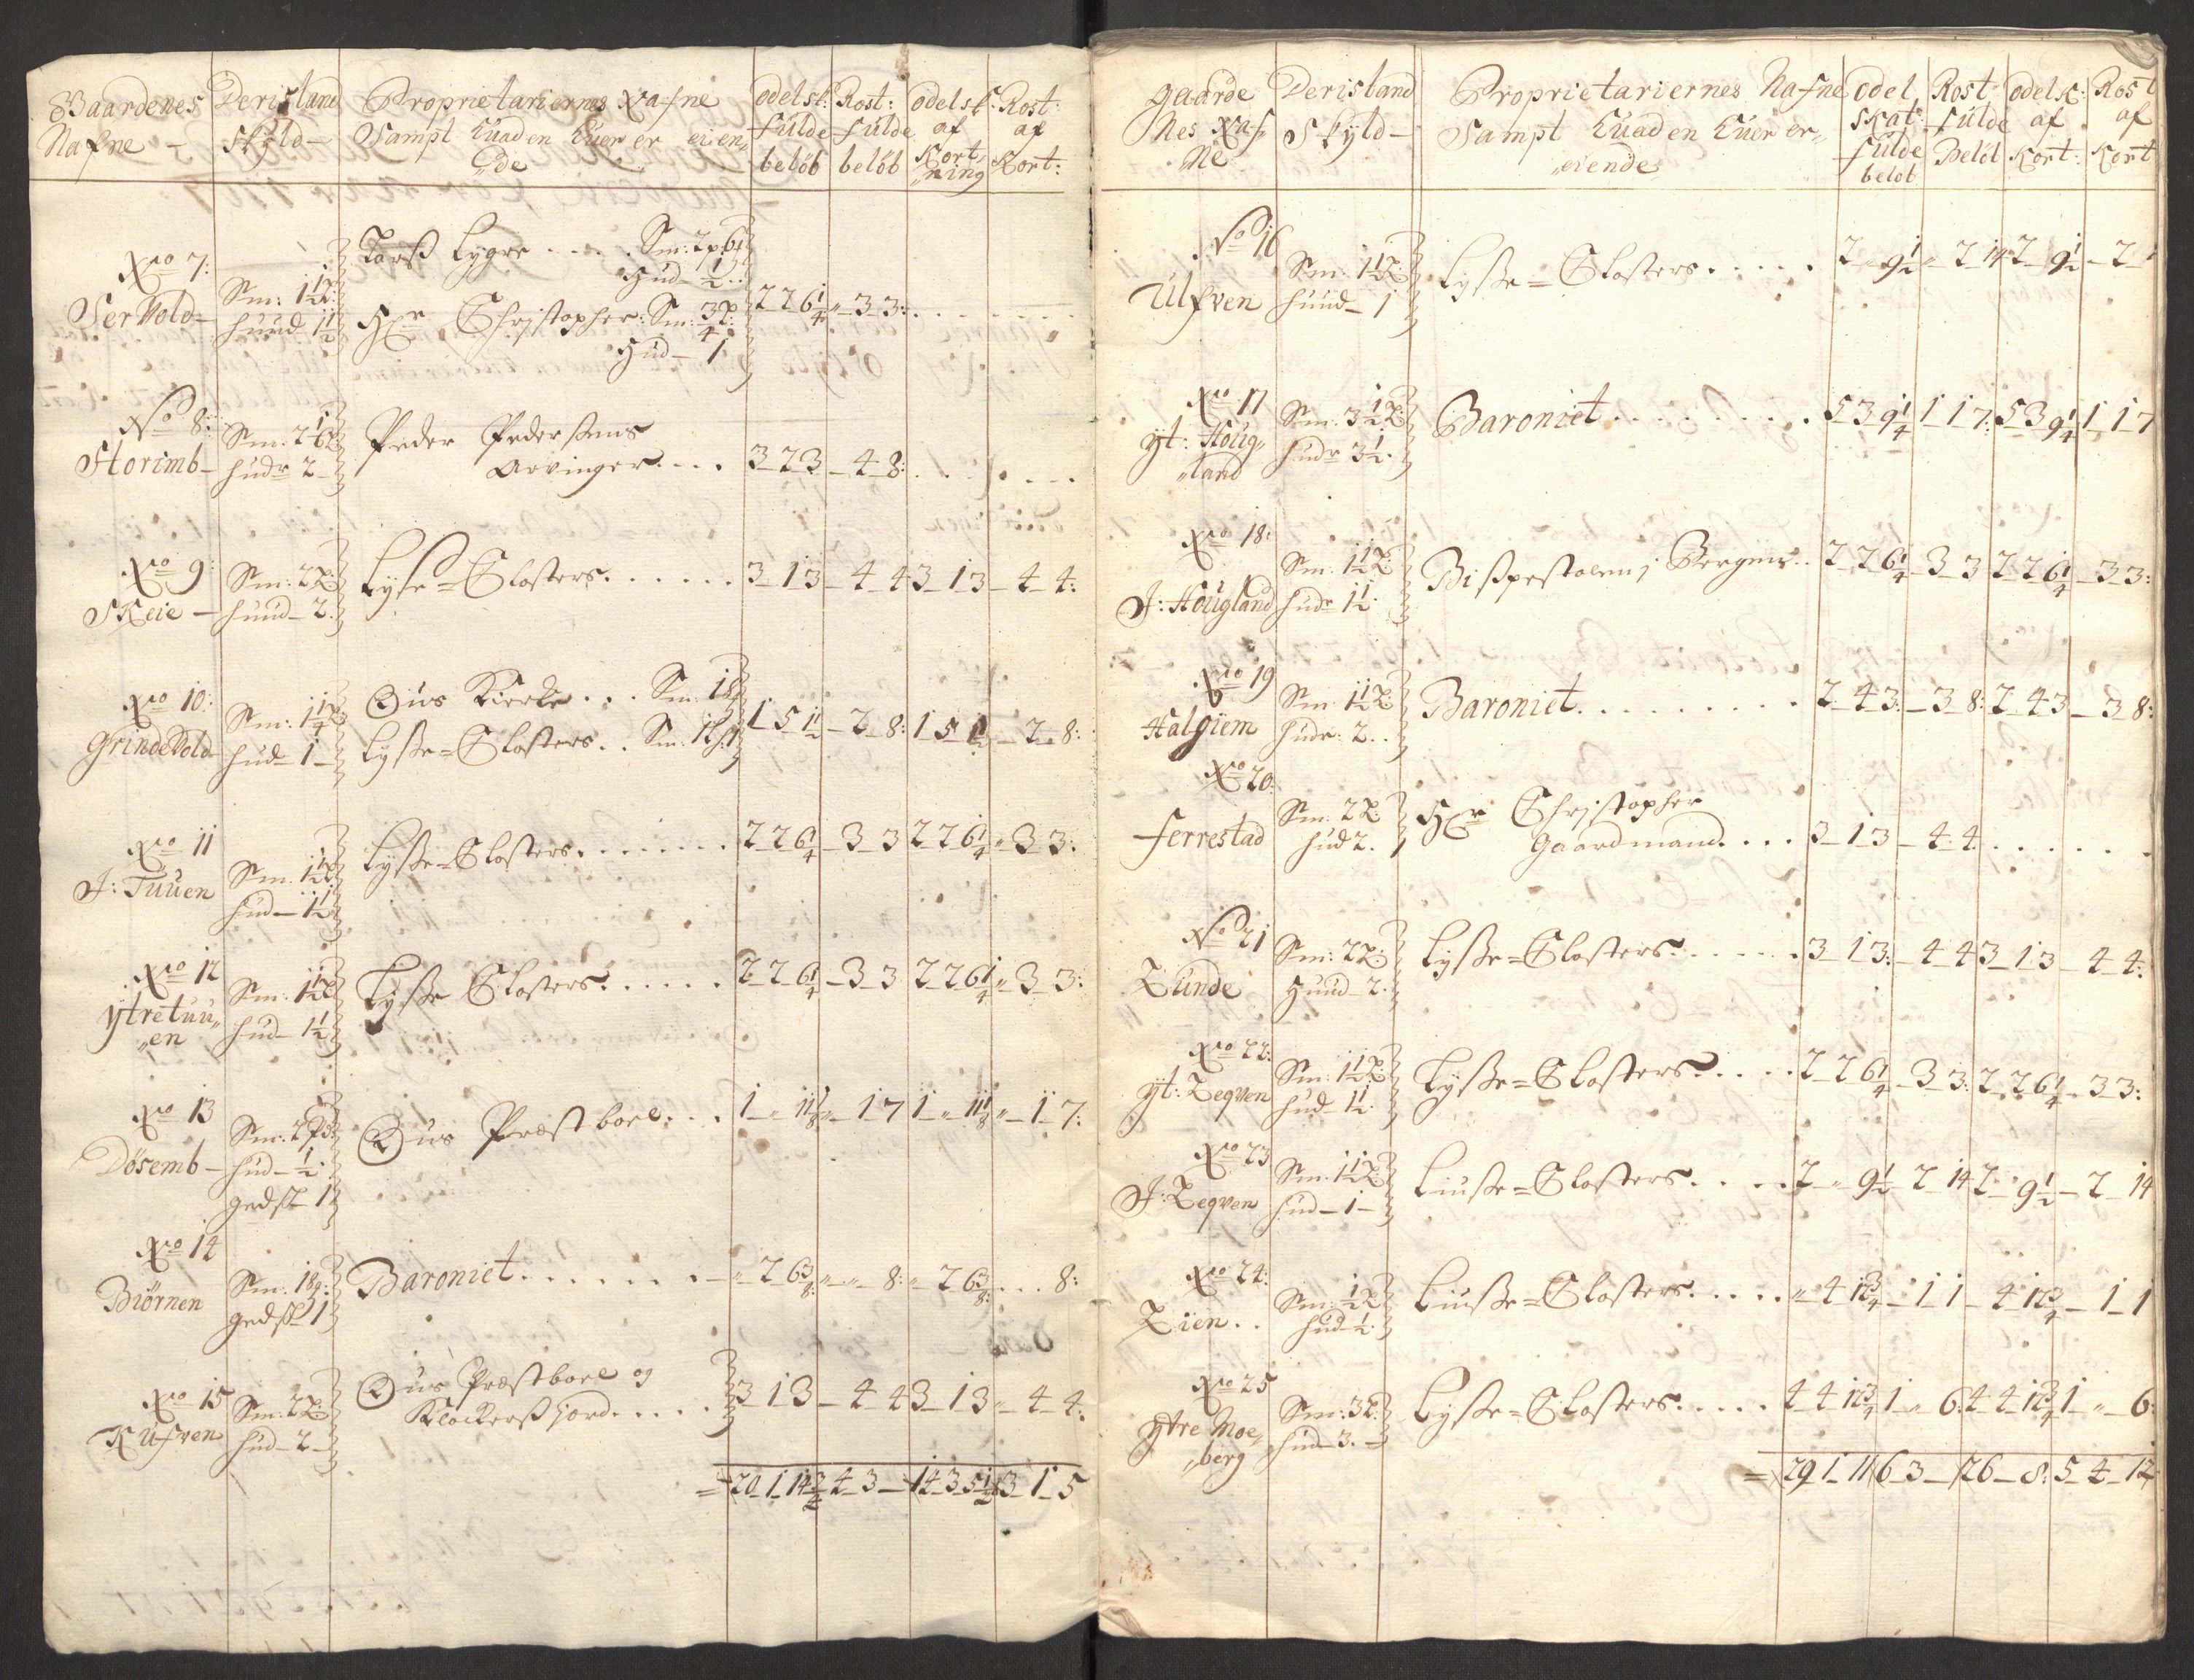 Gaardenes Nafne – Deris Land Skyld – Proprietariernes Nafne Sampt huad en huer er eien„ „de odelsk: fulde beløb Rost: fulde beløb odelsk: af Kort„ „ning Rost: af Kort:
No 7: Lars Lygre . . . . Sm: 2 p 6
Hud – ½
SerVold – Sm: 1½ huud 1½ Hr Christopher: Sm: ¾ 2 2 6¼ „ 3 3: . . . .
Hud – 1
No 8: Storimb – Sm: 2 hudr 2 Peder Pedersens
Arvinger . . . 3 2 3 – 4 8: . . . .
No 9: Skeie – Sm: 2 huud – 2. Lyse=Closters . . . . . . 3 1 3 – 4 4 3 1 3 – 4 4:
No 10: Grindevold Sm: 1¼ hud – 1 – Ous Kierke . . . Sm:
Lysse=Closters . . Sm: 1 5 1½ – 2 8: 1 5 1½ – 2 8:
No 11 J: Tuuen Sm: 1½ hud – 1½ Lysse=Closters . . . . . . . 2 2 6¼ – 3 3 2 2 6¼ „ 3 3:
No 12 ytretuu„ „en Sm: 1½ hud – 1½ Lysse Closters . . . . . 2 2 6¼ – 3 3 2 2 6¼ „ 3 3:
No 13 Døsemb – hud – ½ gedsk 1 Ous Præstboel . . . 1 „ 11⅛ „ 1 7 1 „ 11⅛ „ 1 7:
No 14 Biørnen Sm: 18 gedsk 1 Baroniet . . . . . . . – „ 2 6⅜ „ „ 8: „ 2 6⅜ . . . 8:
No 15 Kufven Sm: 2 hud – 2 – Ous Præstboel og
Klockerss jord . . . . . 3 1 3 – 4 4 3 1 3 „ 4 4:
= 20 1 14¾ 4 3 – 14 3 5½ 3 1 5
gaarde Nes Naf„ Ne Deris Land Skyld – Proprietariernes Nafne Sampt huad en huer er„ „eiende odel Skat: fulde beløb Rost fulde Beløb odelsk: af Kort: Rost af Kort
No 16 Ulfven Sm: 1½ huud – 1 Lysse=Closters . . . . . 2 „ 9½ „ 2 14 2 „ 9½ – 2
No 17 yt: Houg„ „land Sm: 3½ hudr 3½. Baroniet . . . . . . . . . 5 3 9¼ 1 1 7: 5 3 9¼ 1 1 7
No 18: J: Hougland Sm: 1½ hudr 1½ Bispestolen j Bergen . . 2 2 6¼ – 3 3 2 2 6¼ – 3 3:
No 19 Halgiem Sm: 1½ hudr: 2 . . Baroniet . . . . . . . . . 2 4 3 – 3 8: 2 4 3 – 3 8:
No 20: Ferrestad Sm: 2 hud 2. Hr Christopher
Gaardmand . . . . 3 1 3 – 4 4 . . . . . .
No 21 Lunde Sm: 2 Huud – 2. Lysse=Closters . . . . . . 3 1 3: – 4 4 3 1 3 – 4 4:
No 22: yt: Leqven Sm: 1½ hud 1½. Lysse=Closters . . . . 2 2 6¼ – 3 3: 2 2 6¼ – 3 3:
No 23 J: Leqven Sm: 1½ hud – 1 – Liusse=Closters . . . . 2 „ 9½ 2 14 2 „ 9½ – 2 14
No 24: Lien . . Sm: ½ hud – ½. Liusse=Closters . . . . . „ 4 12¾ – 1 1 – 4 12¾ – 1 1
No 25 ytre Moe„ „berg Sm: 3 hud – 3. – Lysse=Closters . . . . . 4 4 12¾ 1 „ 6: 4 4 12¾ 1 „ 6:
= 29 1 11 6 3 – 26 – 8: 5 4 12